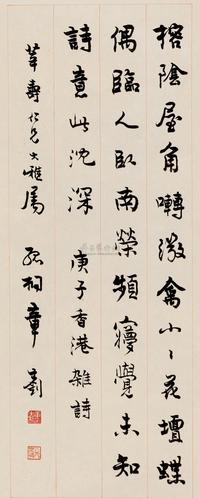 榕陰屋角囀微禽小小花壇蝶
偶臨人臥南榮頻寱覺未知
詩意此沈深 庚子香港雜詩
華壽仁兄大雅屬 孤桐章士釗